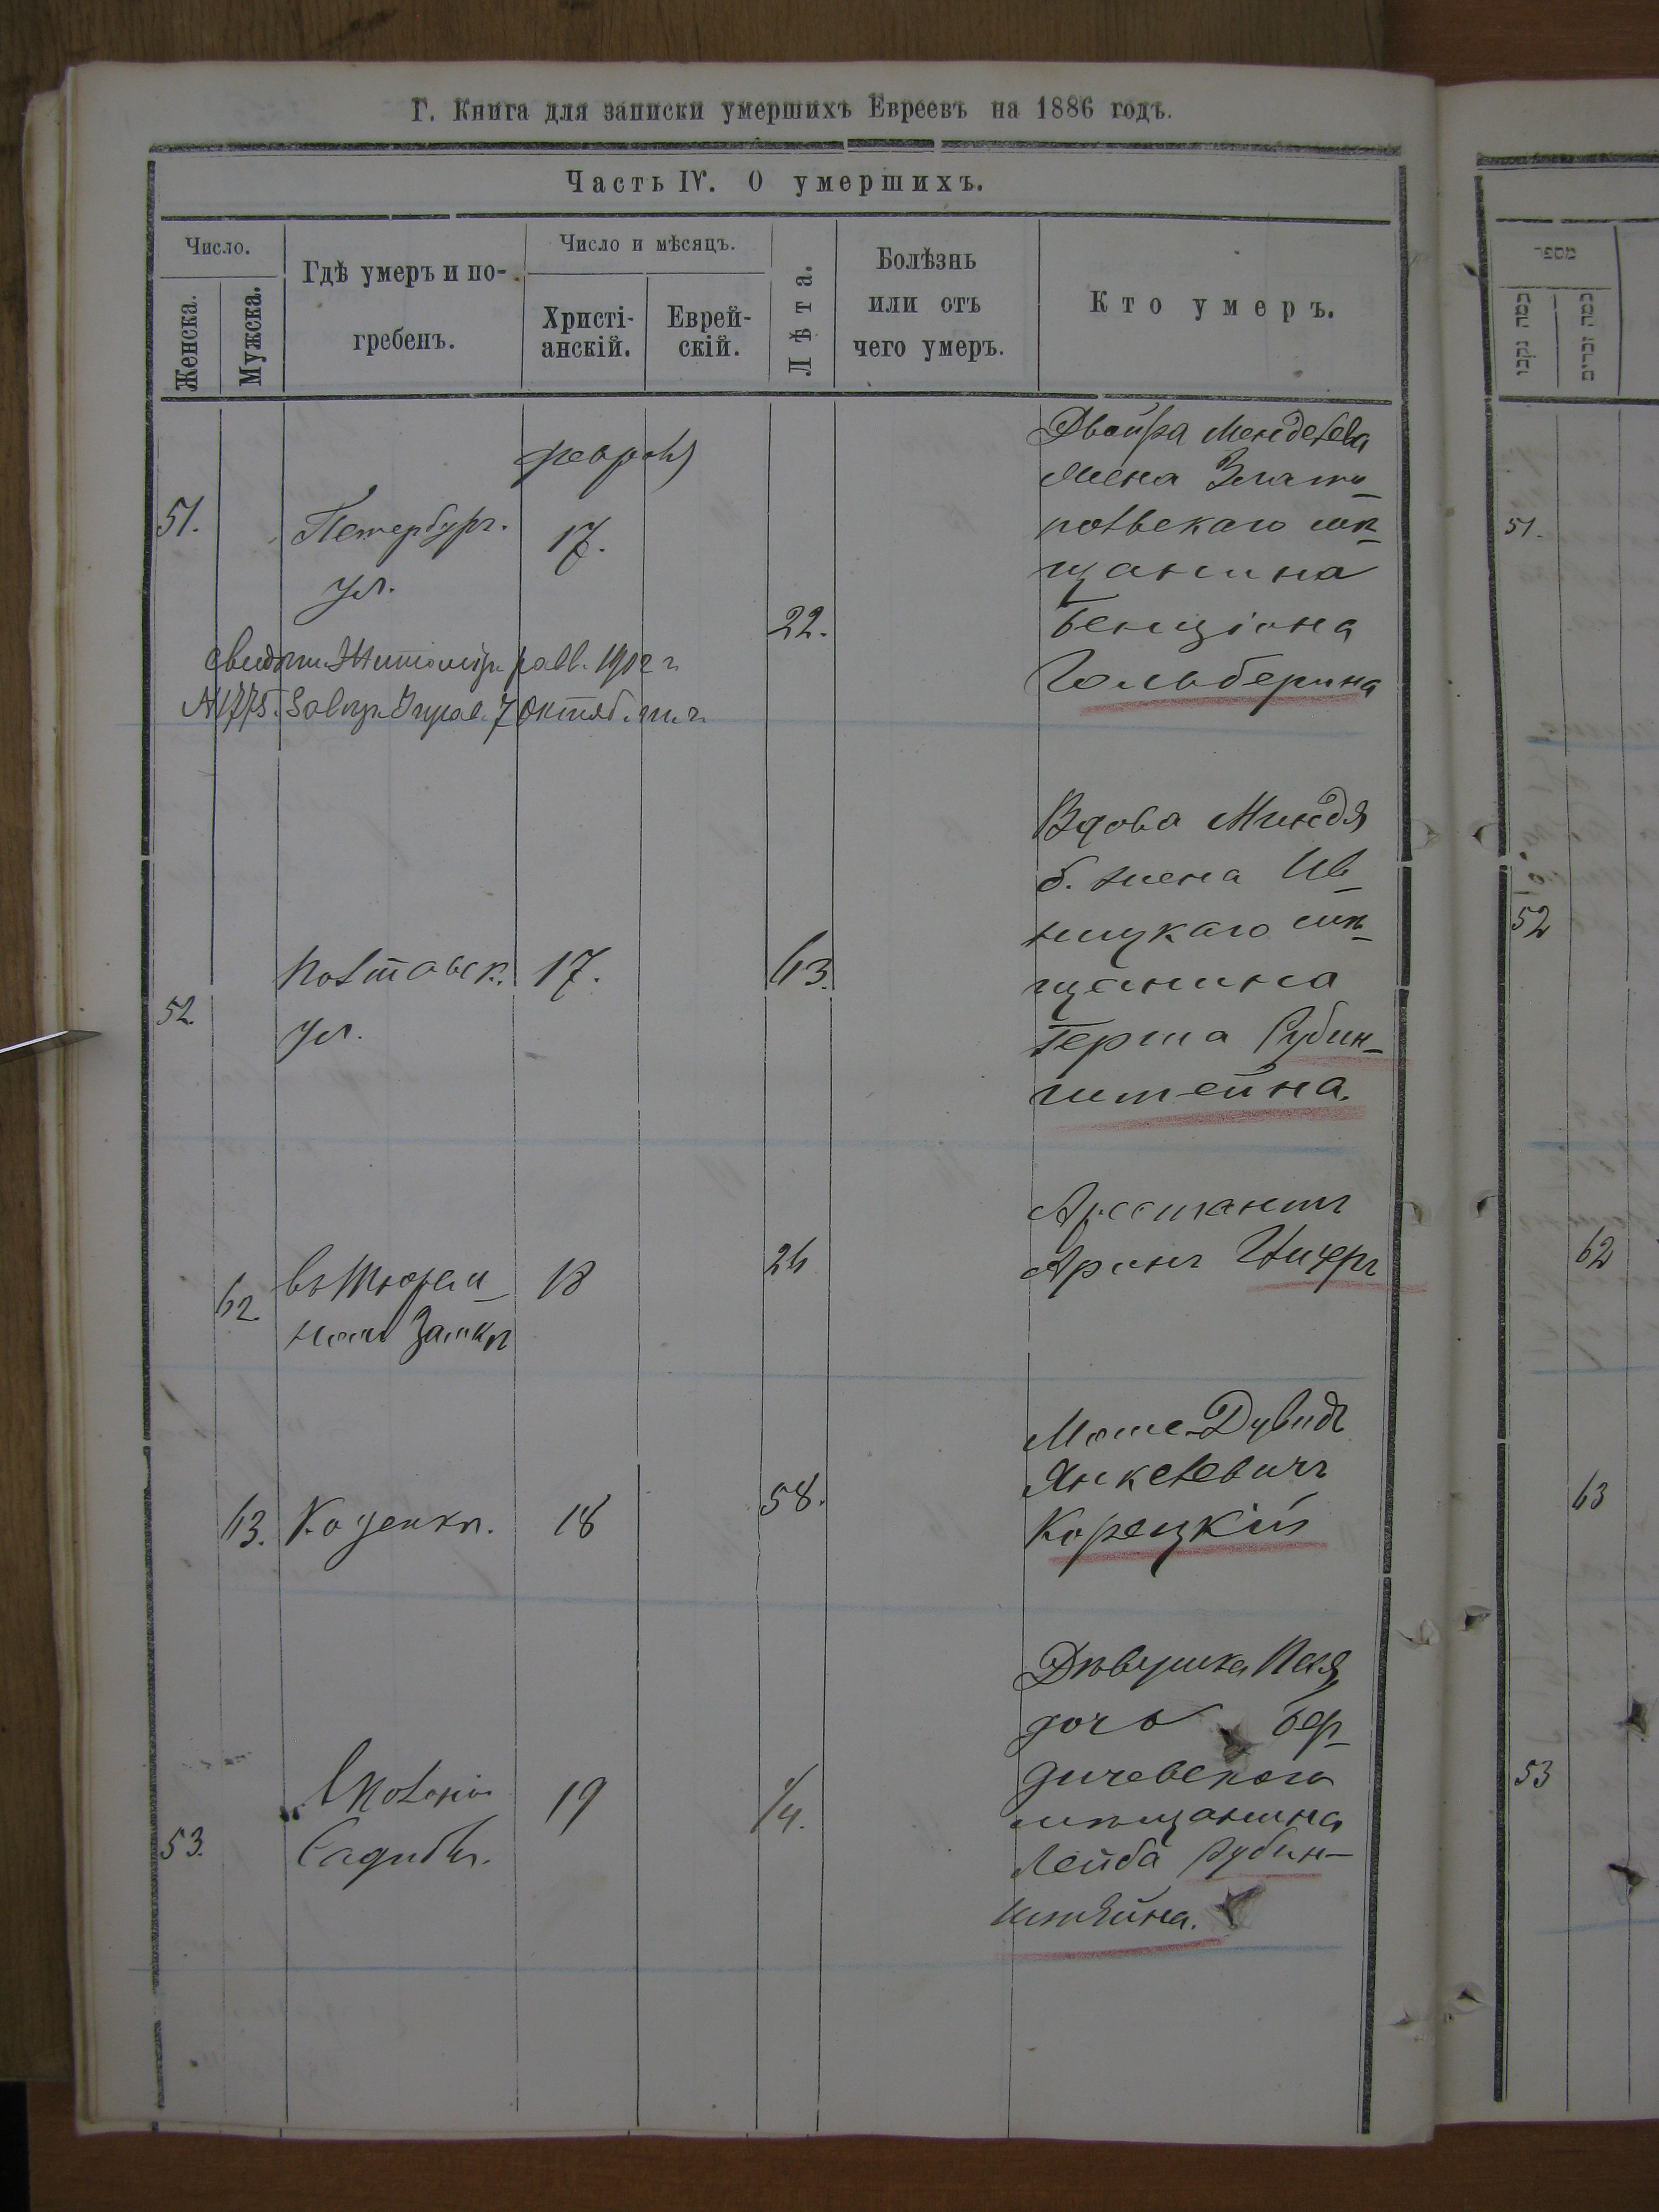 Г. Книга для записки умершихъ Евреевъ на 1886 годъ.
Часть IV. О умершихъ.
Число.
Женска.
Мужска.
Гдѣ умеръ и по-
гребенъ.
Число и мѣсяцъ.
Христі-
анскій.
Еврей-
скій.
Лѣта.
Болѣзнь
или отъ
чего умеръ.
Кто умеръ.
51.
Петербург.
ул.
февраль
17.
22.
Двойра Менделева
жена Злато-
польскаго мѣ-
щанина
Бенціона
Гольберина
Житомір. равв. 1912 г.
7 Октяб.
52.
Полтавск.
ул.
17.
63.
Вдова Миндя
б. жена Ив-
ницкаго мѣ-
щанина
Герша Рубин-
штейна.
62.
въ Тюрем-
номъ Замкѣ
18
26
Арестантъ
Аронъ
63.
18
58.
Моше-Дувидъ
Янкелевичъ
Корецкій
53.
19
1/4.
Дѣвушка
дочь Бер-
дичевскаго
мѣщанина
Лейба Рубин-
штейна.
מספר
51.
52
62
63
53